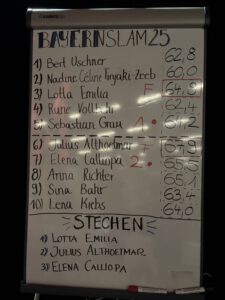 BAYERNSLAM25
1) Bert Uschner 62,8
2) Nadine Céline 60,0
3) Lotta Emilia F 64,8
4) Rune 62,4
5) Sebastian Grau 1. 64,2
6) Julius Althoetmar F
7) Elena Calliopa 2.
8) Anna Richter
9) Sina Bahr 63,4
10) Lena Krebs 64,0
STECHEN
1) LOTTA EMILIA
2) JULIUS ALTHOETMAR
3) ELENA CALLIOPA